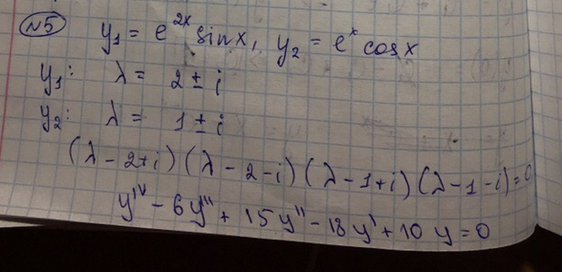 №5 y₁ = e²ˣ sinx, y₂ = eˣ cosx
y₁: λ = 2 ± i
y₂: λ = 1 ± i
(λ - 2 + i)(λ - 2 - i)(λ - 1 + i)(λ - 1 - i) = 0
yᴵⱽ - 6y'' + 15y'' - 18y' + 10y = 0